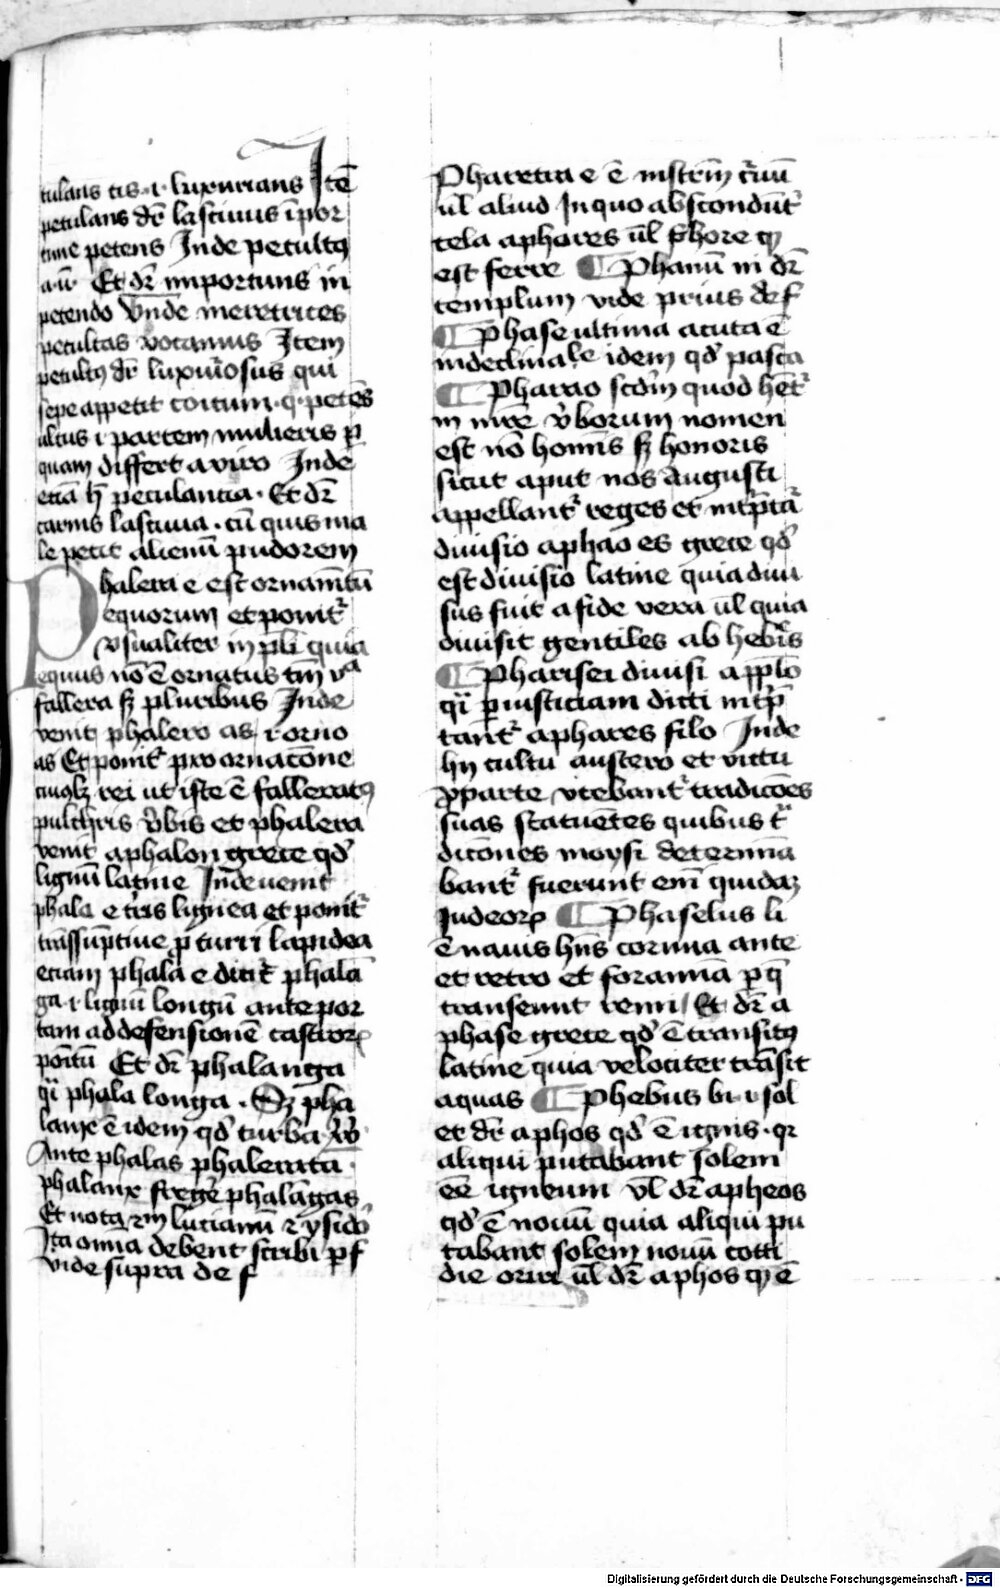 tulans tis .i. luxurians Itē
petulans dr̄ lasciuus īpor
tune petens Inde petulcꝯ
a ū Et dr̄ importuns in
petendo Vnde meretrices
petulcas vocamus Item
petulcꝯ dr̄ luxu͛osus qui
sepe appetit coitum .q. petēs
altus i partem mulieris ꝑ
quam differt a viro Inde
etiā h̄ petulantia . Et dr̄
carnis lasciuia . cū quis ma
le petit alienū pudorem
Phalera e est ornam̄tū
equorum et ponit᷑
vsualiter in pl̄i quia
equus nō ē ornatus tm̄ vᵃ
fallera sꝫ pluribus Inde
venit phalero as .i. orno
as Et ponit᷑ pro ornacōne
cuiꝯlꝫ rei ut iste ē falleratꝯ
pulchris v̄bis et phalera
venit a phalon grece qd̕
lignū latine Inde uenit
phala e t̕ris lignea et ponit᷑
trāssūptiue ꝓ turri lapidea
etiam phala e dicit᷑ phalā
ga .i. lignū longū ante por
tam ad defensionē castroꝝ
poitū Et dr̄ phalanga
q̄i phala longa . Sꝫ pha
lanx ē idem qd̕ turba Vꝰ
Ante phalas phalerata
phalanx frege᷑ phalāgas
Et nota 2m̄ lucianū ⁊ ysido᷑
Ita omīa debent scribi ꝑ f
vide supra de f
Pharetra e ē instrm̄ c̕uū
ul̄ aliud In quo abscondūt᷑
tela a phares ul̄ phore qꝫ
est ferre ¶ Phanū ni dr̄
templum vide prius de f
¶ Phase ultima acuta ē
indeclinale idem qd̕ pasca
¶ Pharao scdm̄ quod hēt᷑
in īnt͛e v̄borum nomen
est nō hoīnis sꝫ honoris
sicut aput nos Augusti
appellant᷑ reges et int͛ptat᷑
diuisio a phao es grece qd̕
est diuisio latine quia diui
sus fuit a fide vera ul̄ quia
diuisit gentiles ab hebr̄is
¶ Pharisei diuisi a ppl̄o
q̄i ꝑ iusticiam dicti int͛p
tant᷑ a phares filo Inde
hii cultu austero et victu
ꝑparte vtebant᷑ tradicōes
suas statuētes quibus tᵃ
dicōnes moysi determina
bant᷑ fuerunt em̄ quidaꝫ
Iudeoꝝ ¶ Phaselus li
ē nauis hn̄s cornua ante
et retro et foramīa ꝑ q̄
transeunt remi Et dr̄ a
phase grece qd̕ ē transitꝯ
latine quia velociter trāsit
aquas ¶ Phebus bi .i. sol
et dr̄ a phos qd̕ ē ignis . qr
aliqui putabant solem
eē igneum Vl̄ dr̄ a pheos
qd̕ ē nouū quia aliqui pu
tabant solem nouū cotti
die oriri ul̄ dr̄ a phos qꝫ ē